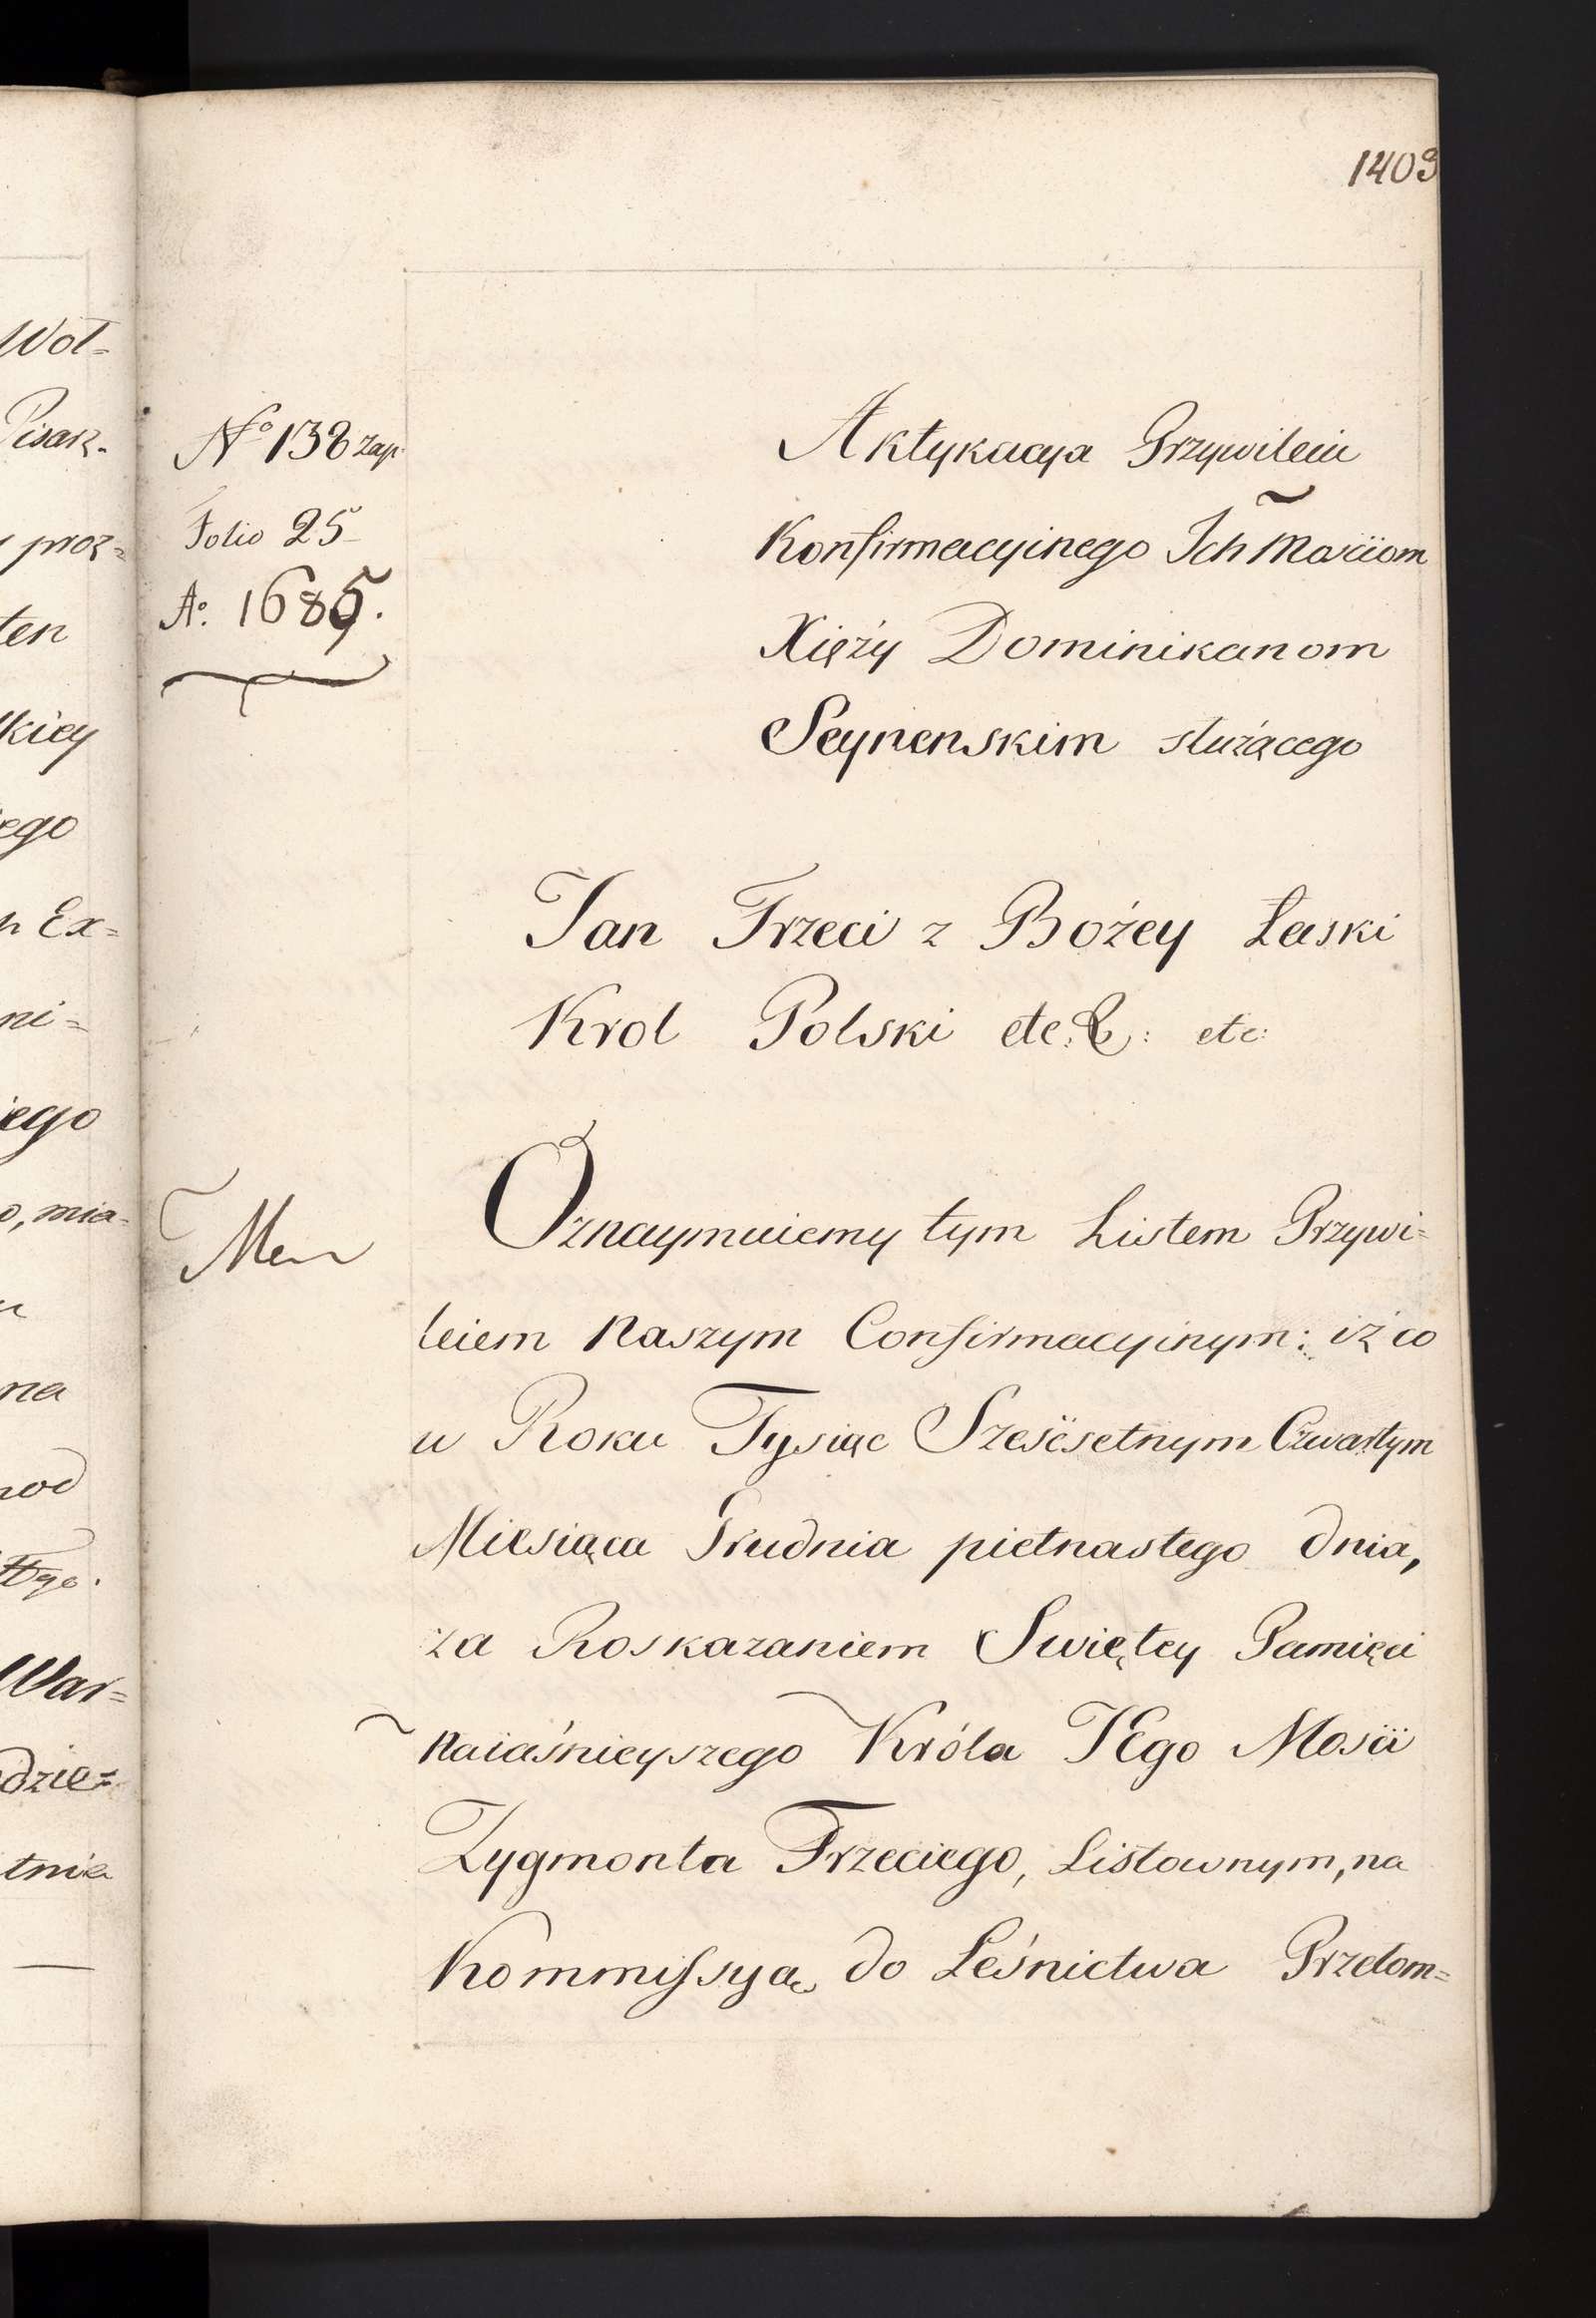 Wol=
Pisarz.
proz=
ten
kiey
ego
Ex=
ni=
iego
o, mia=
na
War=
dzie=
tnie
1409
No 138 zap
Folio 25
Ao. 1685.
Aktykacya Przywileiu
Konfirmacyinego Ich Mościom
Xięży Dominikanom
Seynenskim służącego
Jan Trzeci z Bożey Łaski
Krol Polski etc. &: etc:
Oznaymuiemy tym Listem Przywi=
leiem Naszym Confirmacyinym: iż co
w Roku Tysiąc Sześćsetnym Czwartym
Miesiąca Grudnia pietnastego dnia,
za Roskazaniem Swiętey Pamięci
Naiaśnieyszego Króla JEgo Mości
Zygmonta Trzeciego, Listownym, na
Kommissyą do Leśnictwa Przełom=